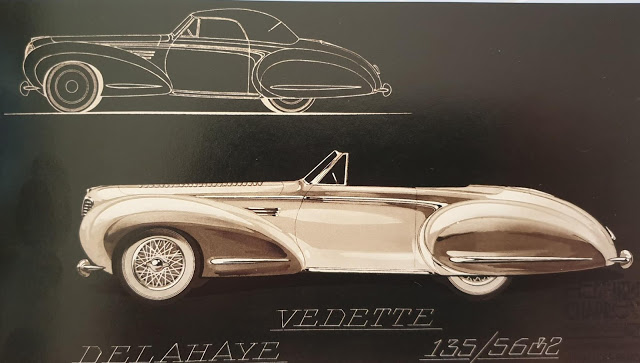 VEDETTE
DELAHAYE 135/5682